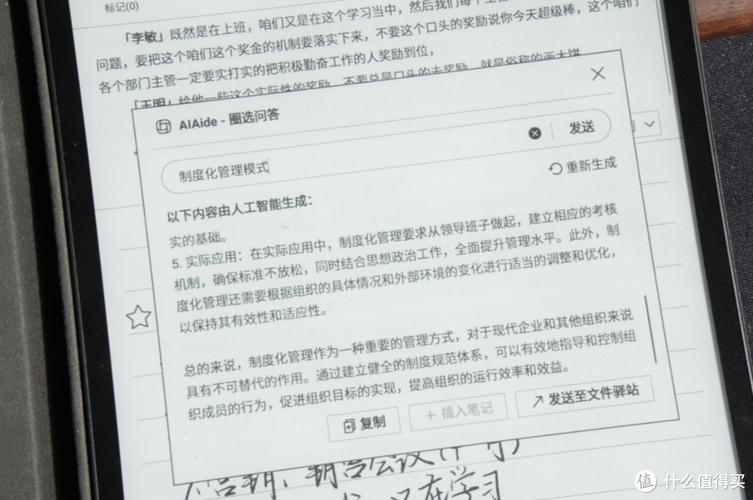 标记(0)
「李敏」既然是在上班，咱们又是在这个学习当中，然后我们每个主
问题，要把这个咱们这个奖金的机制要落实下来，不要这个口头的奖励说你今天超级棒，这个咱们
各个部门主管一定要实打实的把积极勤奋工作的人奖励到位，
「王明」给他一些这个实际性的奖励，不要总是口头的去奖励，就是俗称的画大饼
AIAide - 圈选问答
制度化管理模式
发送
重新生成
以下内容由人工智能生成：
实的基础。
5. 实际应用：在实际应用中，制度化管理要求从领导班子做起，建立相应的考核
机制，确保标准不放松，同时结合思想政治工作，全面提升管理水平。此外，制
度化管理还需要根据组织的具体情况和外部环境的变化进行适当的调整和优化，
以保持其有效性和适应性。
总的来说，制度化管理作为一种重要的管理方式，对于现代企业和其他组织来说
具有不可替代的作用。通过建立健全的制度规范体系，可以有效地指导和控制组
织成员的行为，促进组织目标的实现，提高组织的运行效率和效益。
复制
+ 插入笔记
发送至文件驿站
在学习
值 什么值得买